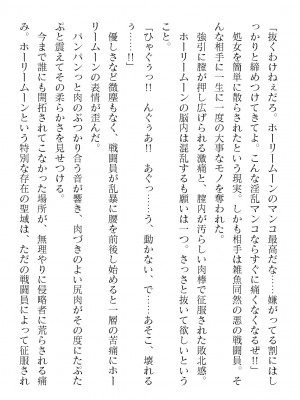 「抜くわけねぇだろ。ホーリームーンのマンコ最高だな……嫌がってる割にはし
っかりと締めつけてきてよ。こんな淫乱マンコならすぐに痛くなくなるぜ!!」
　処女を簡単に散らされたという現実。しかも相手は雑魚同然の悪の戦闘員。そ
んな相手に一生に一度の大事なモノを奪われた。
　強引に膣が押し広げられる激痛と、膣内が汚らしい肉棒で征服された敗北感。
　ホーリームーンの脳内は混乱するも願いは一つ。さっさと抜いて欲しいという
こと。
「ひゃぐぅっ!!　んぐぅあ!!　あぐっ……う、動かない、で……あそこ、壊れる
……」
　優しさなど微塵もなく、戦闘員が乱暴に腰を前後し始めると一層の苦痛にホー
リームーンの表情が歪んだ。
　パンパンっと肉のぶつかり合う音が響き、肉づきのよい尻肉がその度にたぷた
ぷと震えてその柔らかさを見せつける。
　今まで誰にも開拓されてこなかった場所が、無理やりに侵略者に荒らされる痛
み。ホーリームーンという特別な存在の聖域は、ただの戦闘員によって征服され